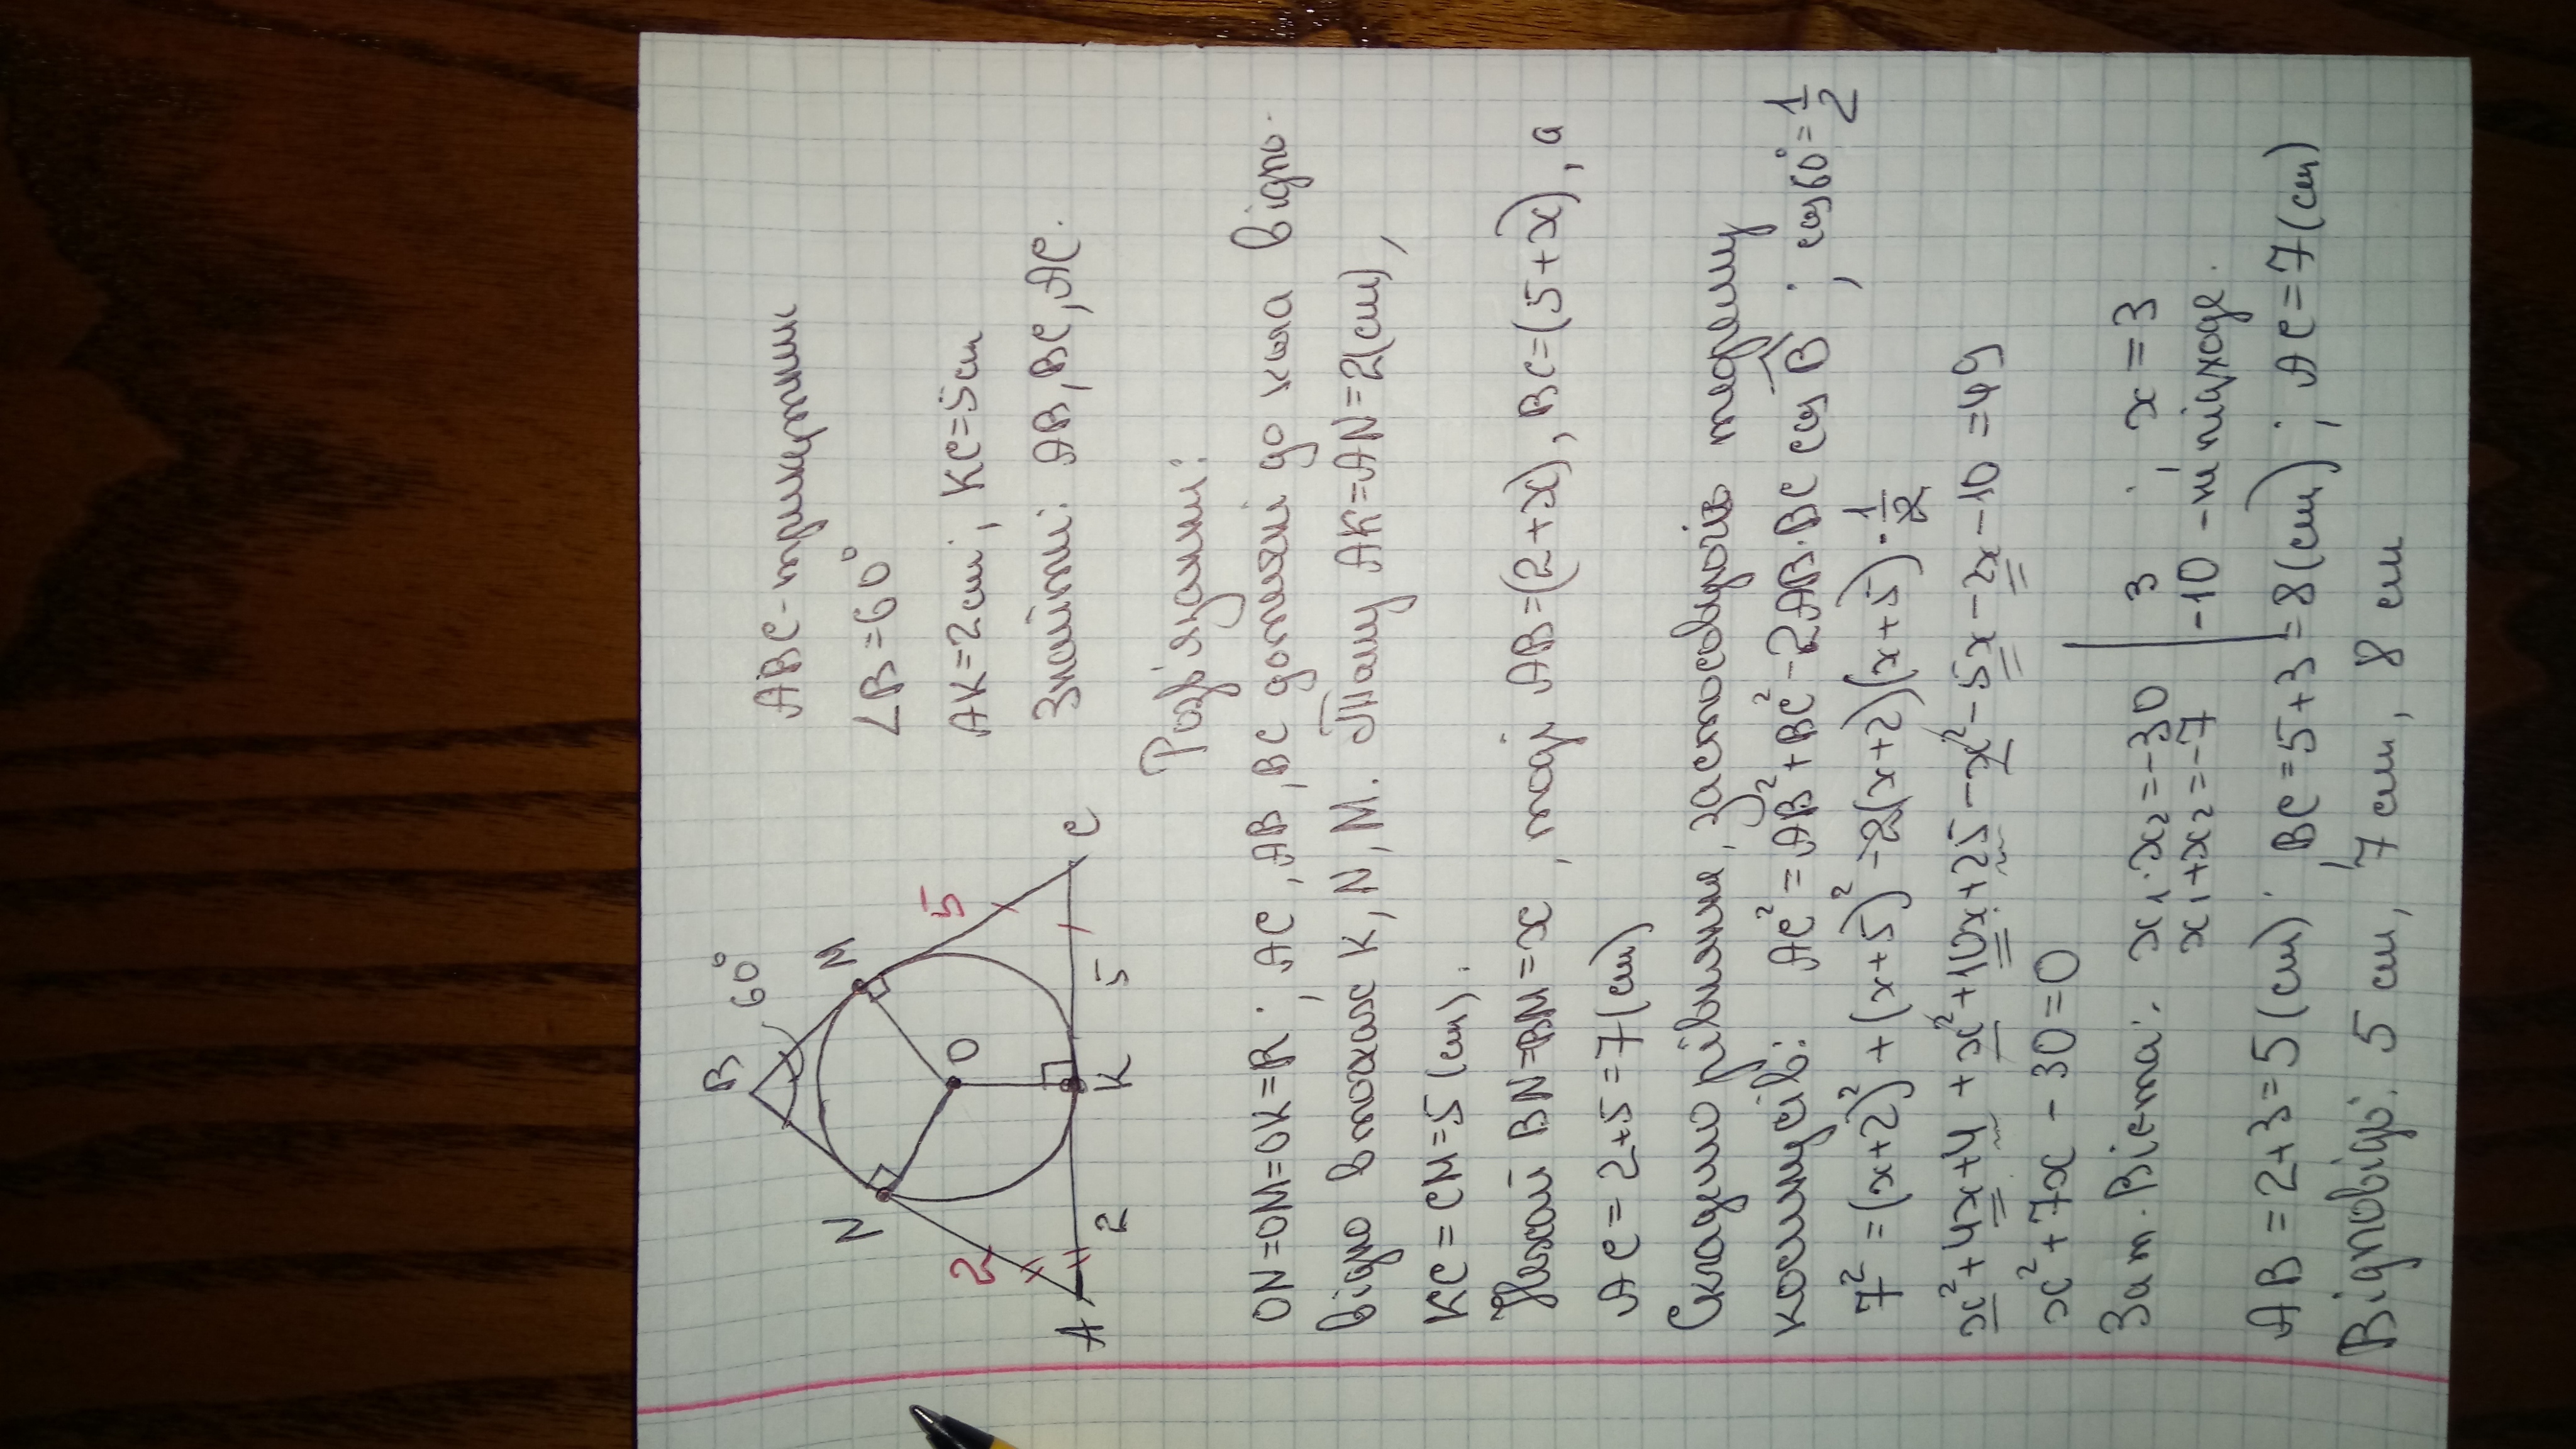 ABC - трикутник
∠B = 60°
AK = 2 см; KC = 5 см
Знайти: AB, BC, AC.
B 60°
N M
2 5
O
A 2 K 5 C
Розв'язання:
ON = OM = OK = R; AC, AB, BC дотичні до кола відпо-
відно в точках K, N, M. Тому AK = AN = 2(см),
KC = CM = 5 (см).
Нехай BN = BM = x, тоді AB = (2 + x), BC = (5 + x), а
AC = 2 + 5 = 7 (см)
Складемо рівняння, застосувавши теорему
косинусів: AC² = AB² + BC² - 2AB·BC cos B̂; cos 60° = 1/2
7² = (x+2)² + (x+5)² - 2(x+2)(x+5)·1/2
x² + 4x + 4 + x² + 10x + 25 - x² - 5x - 2x - 10 = 49
x² + 7x - 30 = 0
За т. Вієта: x₁·x₂ = -30 | 3 ; x = 3
x₁ + x₂ = -7 | -10 - не підходе.
AB = 2 + 3 = 5 (см); BC = 5 + 3 = 8 (см); AC = 7 (см)
Відповідь: 5 см, 7 см, 8 см